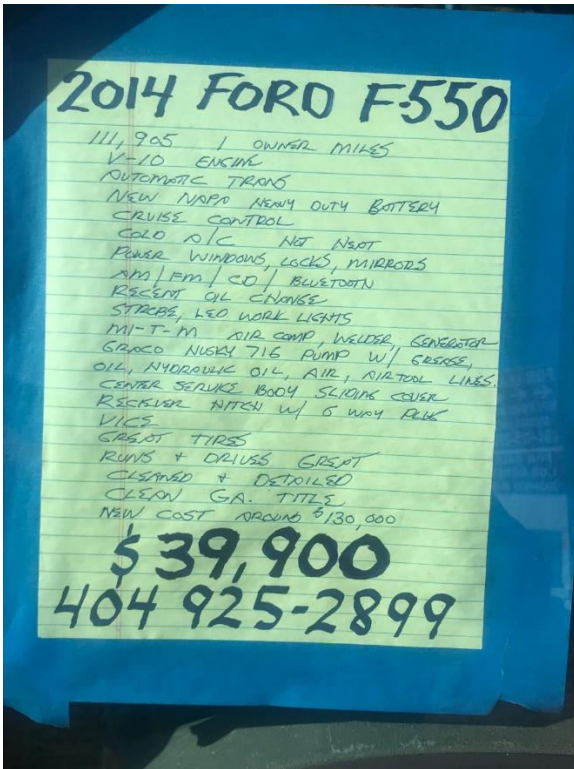 2014 FORD F-550
111,905 1 OWNER MILES
V-10 ENGINE
AUTOMATIC TRANS
NEW NAPA HEAVY DUTY BATTERY
CRUISE CONTROL
COLD A/C HOT HEAT
POWER WINDOWS, LOCKS, MIRRORS
AM/FM/CD/BLUETOOTH
RECENT OIL CHANGE
STROBE, LED WORK LIGHTS
MI-T-M AIR COMP, WELDER, GENERATOR
GRACO HUSKY 716 PUMP W/ GREASE,
OIL, HYDRAULIC OIL, AIR, AIRTOOL LINES.
CENTER SERVICE BODY SLIDING COVER
RECIEVER HITCH W/ 6 WAY PLUG
VICE
GREAT TIRES
RUNS + DRIVES GREAT
CLEANED + DETAILED
CLEAN GA. TITLE
NEW COST AROUND $130,000
$39,900
404 925-2899